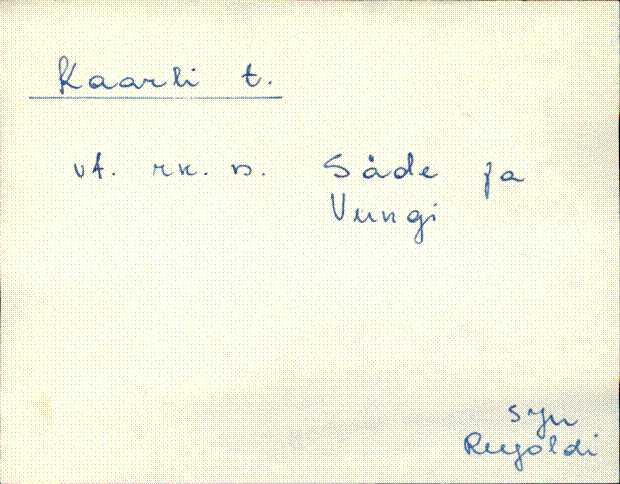 Kaarli t.
vt. rk. n. Säde ja
Vungi
Syn
Reigoldi